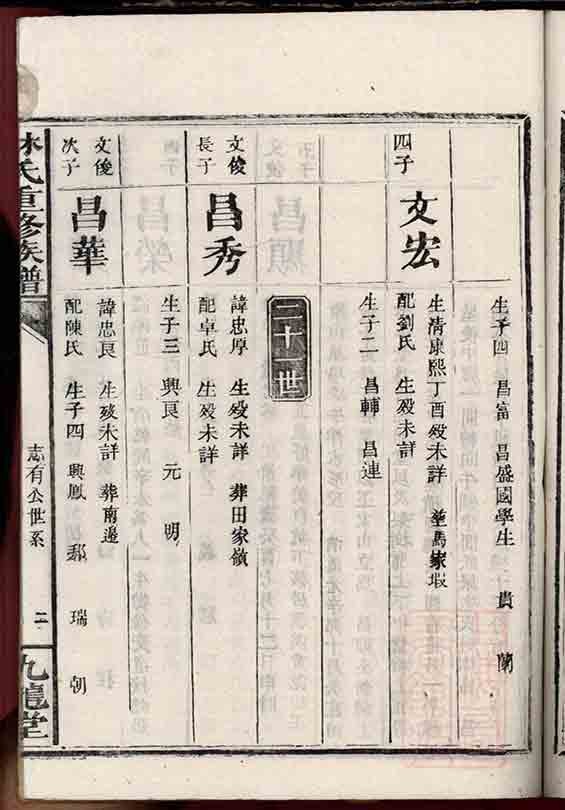 生子四 昌富 昌盛國學生 貴 蘭
四子 文宏
生清康熙丁酉殁未詳 塟馬家塅
配劉氏 生殁未詳
生子二 昌輔 昌連
二十一世
文俊長子 昌秀
諱忠厚 生殁未詳 葬田家嶺
配卓氏 生殁未詳
生子三 興良 元 明
文俊次子 昌華
諱忠良 生殁未詳 葬南邊
配陳氏 生子四 興鳳 瑞 朝
林氏重修族譜
志有公世系
二
九龍堂